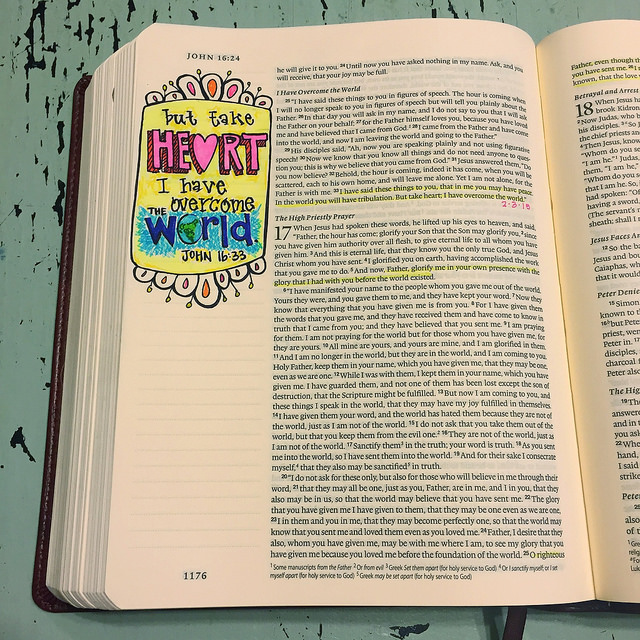 JOHN 16:24
but take
HEART
I have
overcome
THE
World.
JOHN 16:33
he will give it to you. 24 Until now you have asked nothing in my name. Ask, and you
will receive, that your joy may be full.
I Have Overcome the World
25 "I have said these things to you in figures of speech. The hour is coming when
I will no longer speak to you in figures of speech but will tell you plainly about the
Father. 26 In that day you will ask in my name, and I do not say to you that I will ask
the Father on your behalf; 27 for the Father himself loves you, because you have loved
me and have believed that I came from God. 28 I came from the Father and have come
into the world, and now I am leaving the world and going to the Father."
29 His disciples said, "Ah, now you are speaking plainly and not using figurative
speech! 30 Now we know that you know all things and do not need anyone to ques-
tion you; this is why we believe that you came from God." 31 Jesus answered them, "Do
you now believe? 32 Behold, the hour is coming, indeed it has come, when you will be
scattered, each to his own home, and will leave me alone. Yet I am not alone, for the
Father is with me. 33 I have said these things to you, that in me you may have peace.
In the world you will have tribulation. But take heart; I have overcome the world."
The High Priestly Prayer
17 When Jesus had spoken these words, he lifted up his eyes to heaven, and said,
"Father, the hour has come; glorify your Son that the Son may glorify you, 2 since
you have given him authority over all flesh, to give eternal life to all whom you have
given him. 3 And this is eternal life, that they know you the only true God, and Jesus
Christ whom you have sent. 4 I glorified you on earth, having accomplished the work
that you gave me to do. 5 And now, Father, glorify me in your own presence with the
glory that I had with you before the world existed.
6 "I have manifested your name to the people whom you gave me out of the world.
Yours they were, and you gave them to me, and they have kept your word. 7 Now they
know that everything that you have given me is from you. 8 For I have given them
the words that you gave me, and they have received them and have come to know in
truth that I came from you; and they have believed that you sent me. 9 I am praying
for them. I am not praying for the world but for those whom you have given me, for
they are yours. 10 All mine are yours, and yours are mine, and I am glorified in them.
11 And I am no longer in the world, but they are in the world, and I am coming to you.
Holy Father, keep them in your name, which you have given me, that they may be one,
even as we are one. 12 While I was with them, I kept them in your name, which you have
given me. I have guarded them, and not one of them has been lost except the son of
destruction, that the Scripture might be fulfilled. 13 But now I am coming to you, and
these things I speak in the world, that they may have my joy fulfilled in themselves.
14 I have given them your word, and the world has hated them because they are not of
the world, just as I am not of the world. 15 I do not ask that you take them out of the
world, but that you keep them from the evil one.2 16 They are not of the world, just as
I am not of the world. 17 Sanctify them3 in the truth; your word is truth. 18 As you sent
me into the world, so I have sent them into the world. 19 And for their sake I consecrate
myself,4 that they also may be sanctified5 in truth.
20 "I do not ask for these only, but also for those who will believe in me through their
word, 21 that they may all be one, just as you, Father, are in me, and I in you, that they
also may be in us, so that the world may believe that you have sent me. 22 The glory
that you have given me I have given to them, that they may be one even as we are one,
23 I in them and you in me, that they may become perfectly one, so that the world may
know that you sent me and loved them even as you loved me. 24 Father, I desire that they
also, whom you have given me, may be with me where I am, to see my glory that you
have given me because you loved me before the foundation of the world. 25 O righteous
1 Some manuscripts from the Father 2 Or from evil 3 Greek Set them apart (for holy service to God) 4 Or I sanctify myself; or I set
myself apart (for holy service to God) 5 Greek may be set apart (for holy service to God)
1176
Father, even though th
you have sent me.
known, that the love
Betrayal and Arrest
18 When Jesus
brook Kidron
Now Judas, who b
his disciples.
Then Jesus, know
"Whom do you se
"I am he." Judas
them, "I am he,"
"Whom do you s
that I am he. So,
had spoken: "Of
having a sword,
(The servant's
sheath; shall I
Jesus Faces A
12 So the b
Jesus and bou
Caiaphas, wh
that it would
Peter Denie
15 Simon
known to th
but Peter
priest, wen
Peter in.
disciples,
charcoal f
Peter also
The Hig
19 The
answere
and in t
you ask
hand,
I said
strike
Peter
also
of t